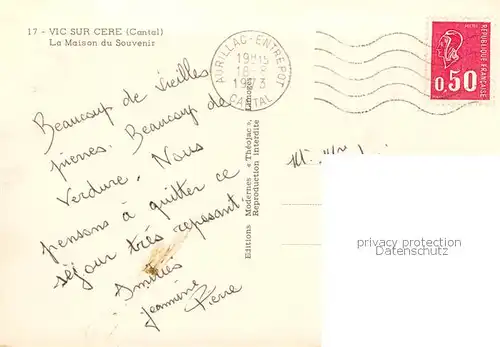 17 - VIC SUR CERE (Cantal)
La Maison du Souvenir
Beaucoup de vieilles
pierres. Beaucoup de
verdure. Nous
pensons à quitter ce
séjour très reposant.
Amitiés
Jeannine
Pierre
AURILLAC-ENTREPOT
19H15
1973
CANTAL
Editions Modernes « Théojac », Limoges
Reproduction interdite
REPUBLIQUE FRANCAISE
0,50
privacy protection
Datenschutz